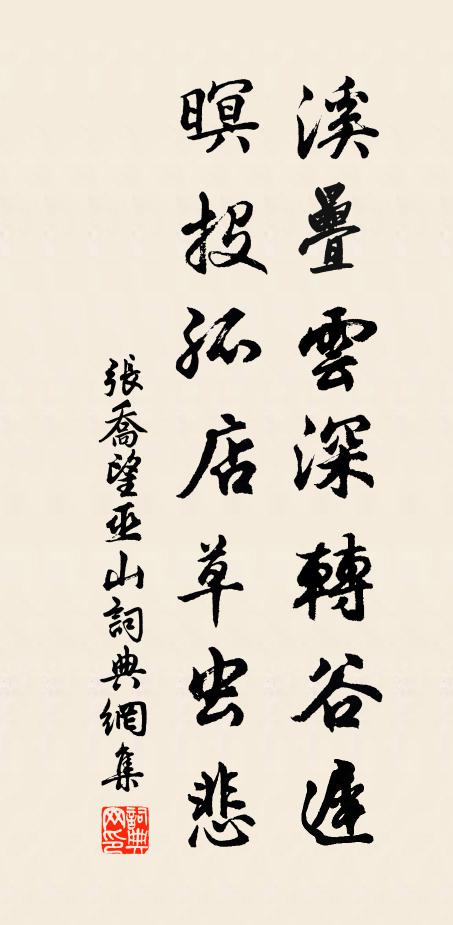 溪疊雲深轉谷遲
暝投孤店草虫悲
張喬望巫山詞典網集
詞典网印